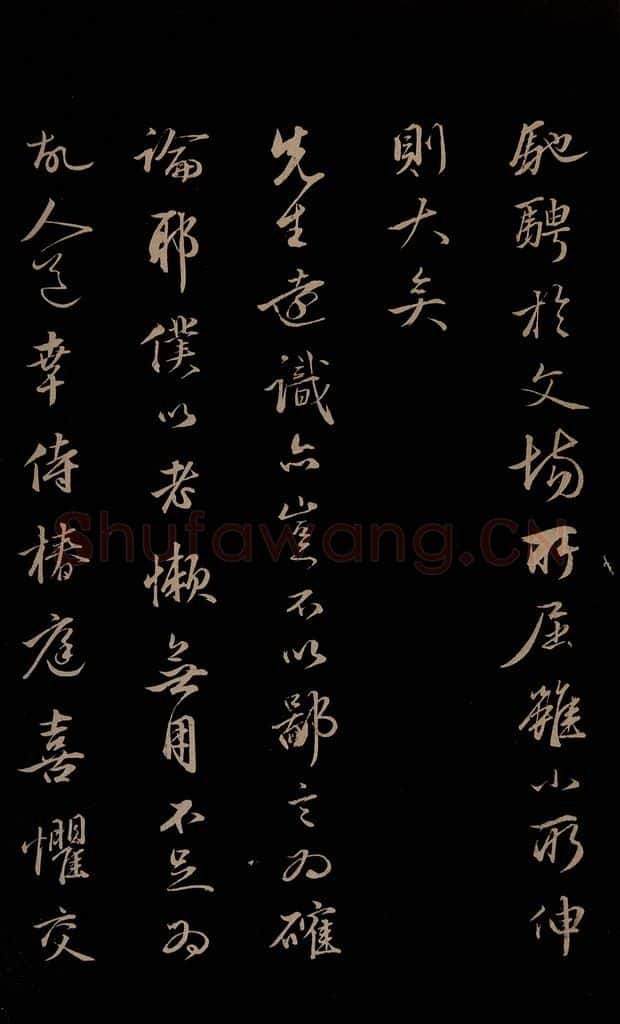 馳騁於文場所屈雖小所伸
則大矣
先生遠識亦豈不以鄙言為確
論耶僕以老懶無用不足為
故人道幸侍椿庭喜懼交
Shufawang.CN